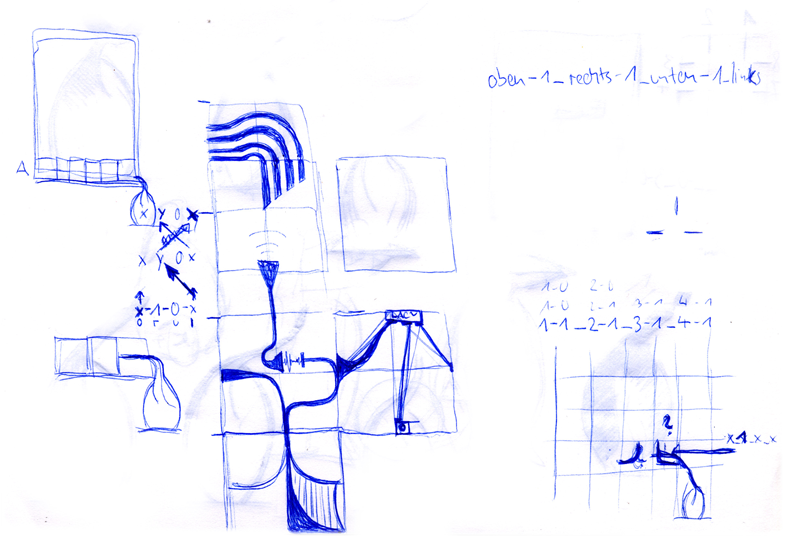 oben-1_rechts-1_unten-1_links
A
x y 0 x
x y 0 x
x-1-0-x
1-0 2-0
1-0 2-1 3-1 4-1
1-1_2-1_3-1_4-1
2
x_1_x_x